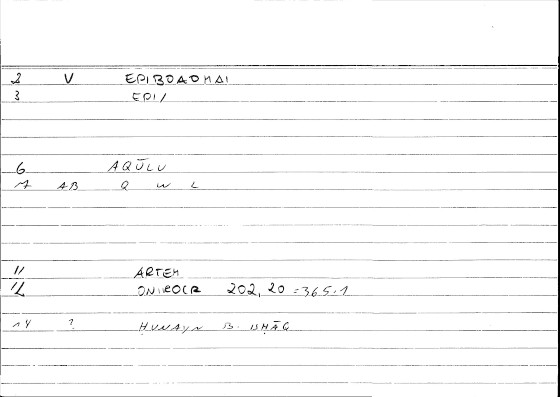 2 V EPIBOAOMAI
3 EPI/
6 AQŪLU
7 AB Q W L
11 ARTEM
12 ONIROCR 202,20 =365.1
14 ? ḤUNAYN B. ISḤĀQ